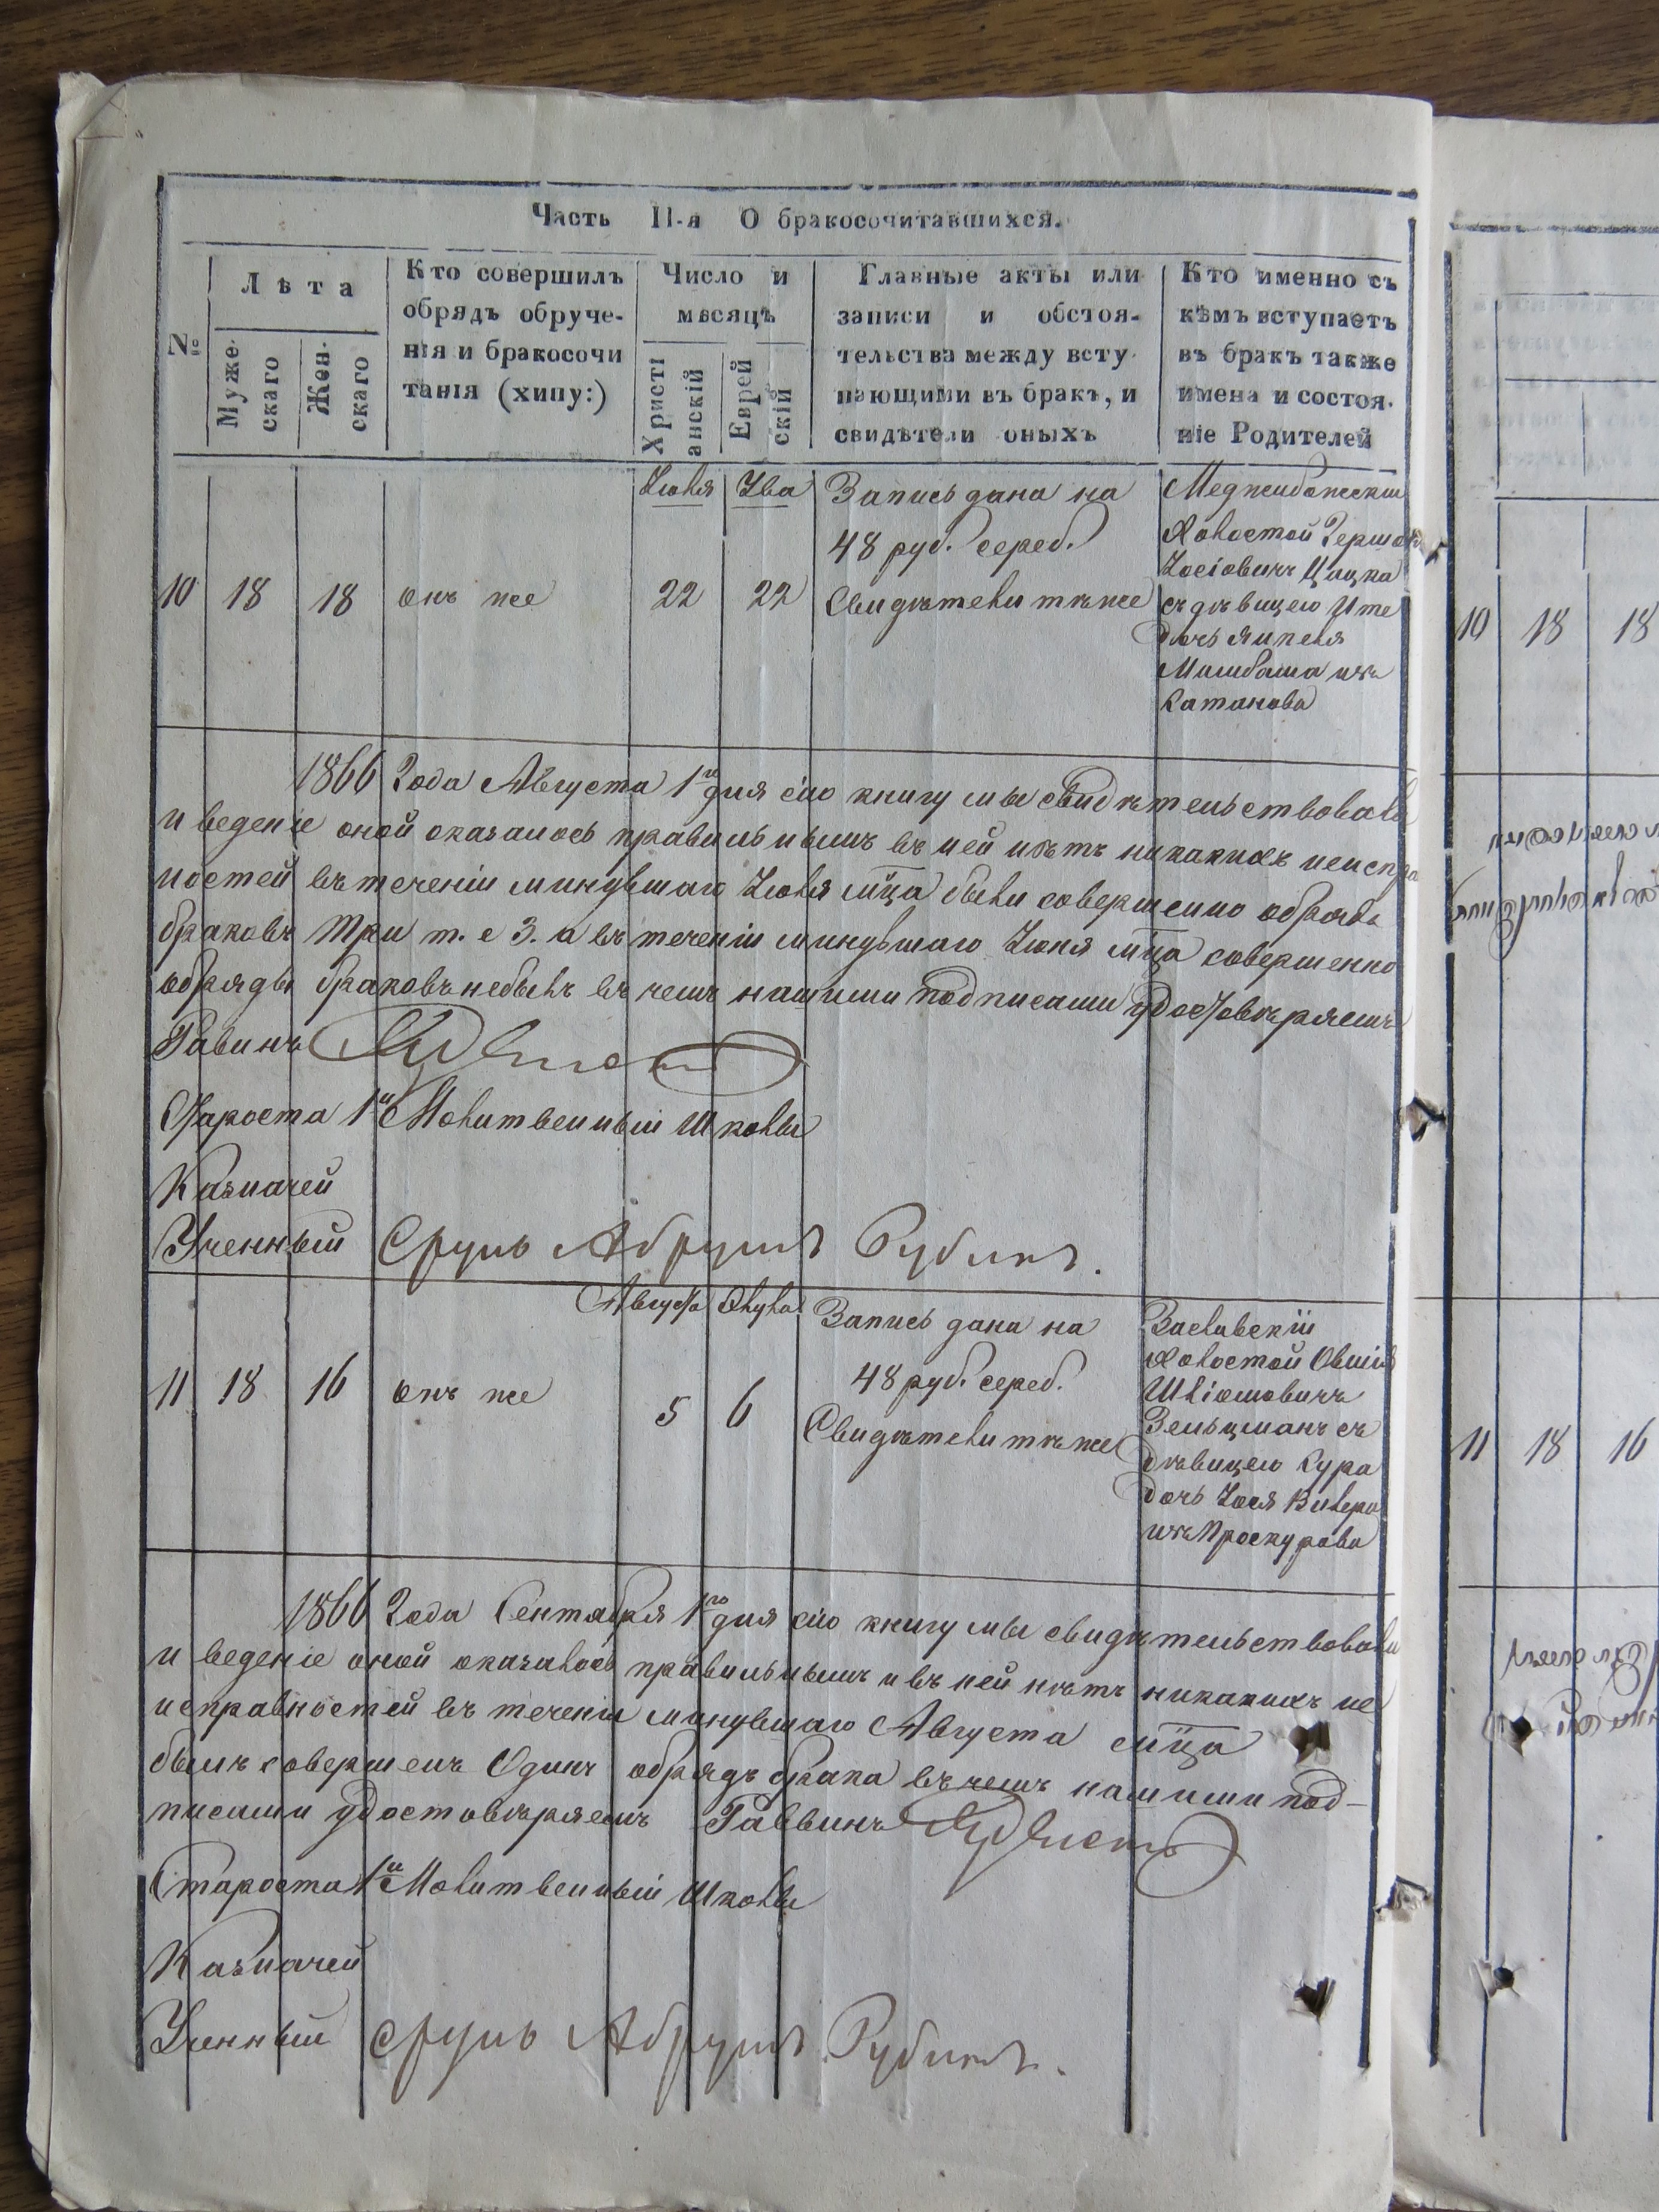 Часть II-я О бракосочитавшихся.
№
Лѣта
Муже-
скаго
Жен-
скаго
Кто совершилъ
обрядъ обруче-
нія и бракосочи
танія (хипу:)
Число и
мѣсяцъ
Христі
анскій
Еврей
скій
Главные акты или
записи и обстоя-
тельства между всту
пающими въ бракъ, и
свидѣтели оныхъ
Кто именно съ
кѣмъ вступаетъ
въ бракъ также
имена и состоя-
ніе Родителей
10
18
18
онъ же
Іюля
22
22
Запись дана на
48 руб. сереб.
Свидѣтели тѣже
Меджибожскій
Холостой Гершко
Іосіовичъ Цацка
съ дѣвицею Ите
дочь
изъ
1866 Года Августа 1го дня сію книгу мы свидѣтельствовали
и веденіе оной оказалось правильнымъ въ ней нѣтъ никакихъ неиспра
ностей въ теченіи минувшаго Іюля мца были совершенно обряда
браковъ три т. е 3. а въ теченіи минувшаго Іюня мца совершенно
обряды браковъ небылъ въ чемъ нашими подписами удостовѣряемъ
Равинъ
Староста 1й Молитвенный Школы
Казначей
Ученный Сруль Абрумъ Рубинъ.
11
18
16
онъ же
Августа
5
Элула
6
Запись дана на
48 руб. сереб.
Свидѣтели тѣже
Заславскій
Холостой Овшій
Шліомовичъ
Зельцманъ съ
дѣвицею Сура
дочь Іося
изъ Проскурова
1866 Года Сентября 1го дня сію книгу мы свидѣтельствовали
и веденіе оной оказалось правильнымъ и въ ней нѣтъ никакихъ не
исправностей въ теченіи минувшаго Августа мца
былъ совершенъ Одинъ обрядъ брака въ чемъ нашими под-
писами удостовѣряемъ Раввинъ
Староста 1й Молитвенный Школы
Казначей
Ученный Сруль Абрумъ Рубинъ.
10
18
18
11
18
16